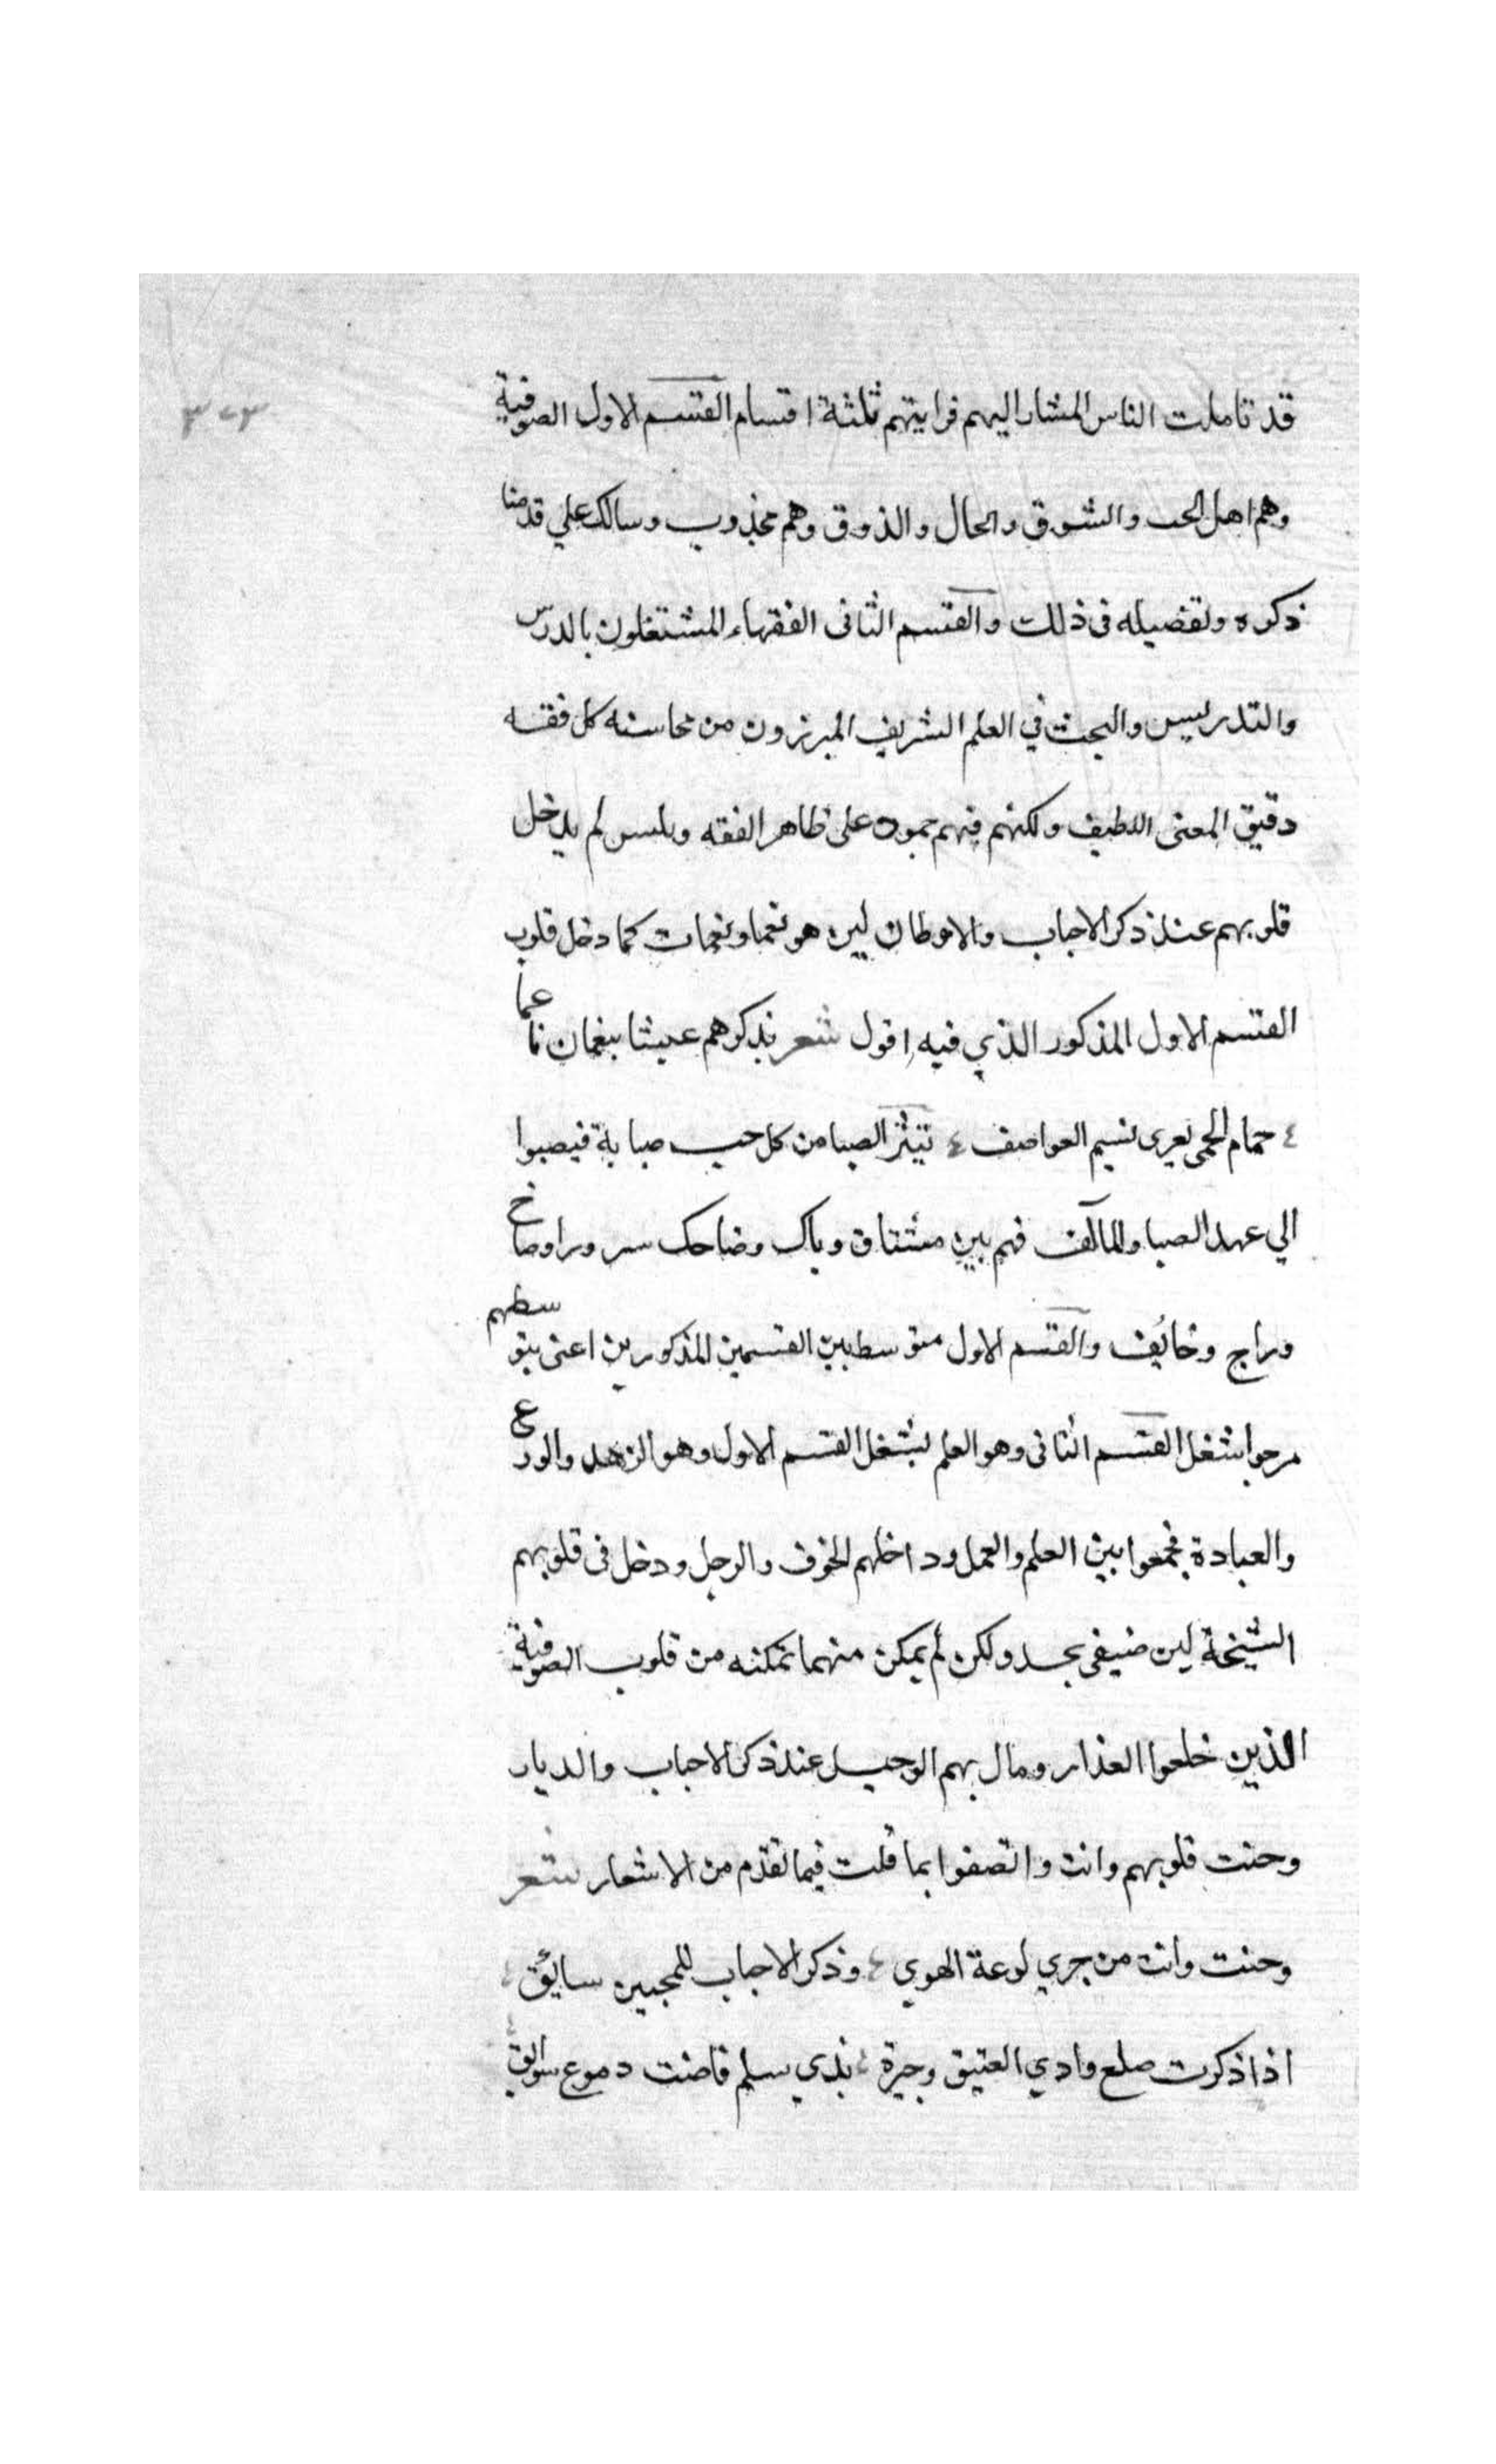 قد تاملت الناس المشار اليهم فرايتهم ثلثة اقسام القسم الاول الصوفية
وهم اهل الحب والشوق والحال والذوق وهم مجذوب وسالك علي قدمنا
ذكره وتفضيله في ذلك والقسم الثاني الفقهاء المشتغلون بالدرس
والتدريس والبحث في العلم الشريف المبرزون من محاسنه كل فقه
دقيق المعنى اللطيف ولكنهم فيهم جمود على ظاهر الفقه ويلبس لم يدخل
قلوبهم عند ذكر الاحباب والاوطان لين هو نغما ونغمات كما دخل قلوب
القسم الاول المذكور الذي فيه اقول شعر يذكرهم عيشا بنعمان ناعما
حمام الحمى يعرى نسيم العواصف تثير الصبا من كل حب صبابة فيصبوا
الي عهد الصبا والمآلف فهم بين مشتاق وباك وضاحك سرورا وصارخ
وراج وخائف والقسم الاول متوسط بين القسمين المذكورين اعنى بتوسطهم
مرجوا شغل القسم الثاني وهو العلم لشغل القسم الاول وهو الزهد والورع
والعبادة فجمعوا بين العلم والعمل وداخلهم الخوف والوجل ودخل في قلوبهم
الشيخة لين ولكن لم يمكن منهما تمكنه من قلوب الصوفية
الذين خلعوا العذار ومال بهم الوجل عند ذكر الاحباب والديار
وحنت قلوبهم وانت واتصفوا بما قلت فيما تقدم من الاشعار شعر
وحنت وانت من جري لوعة الهوي وذكر الاحباب للمحبين سائق
اذا ذكرت صلع وادي العتيق وجيرة بذي سلم فاضت دموع سوابق